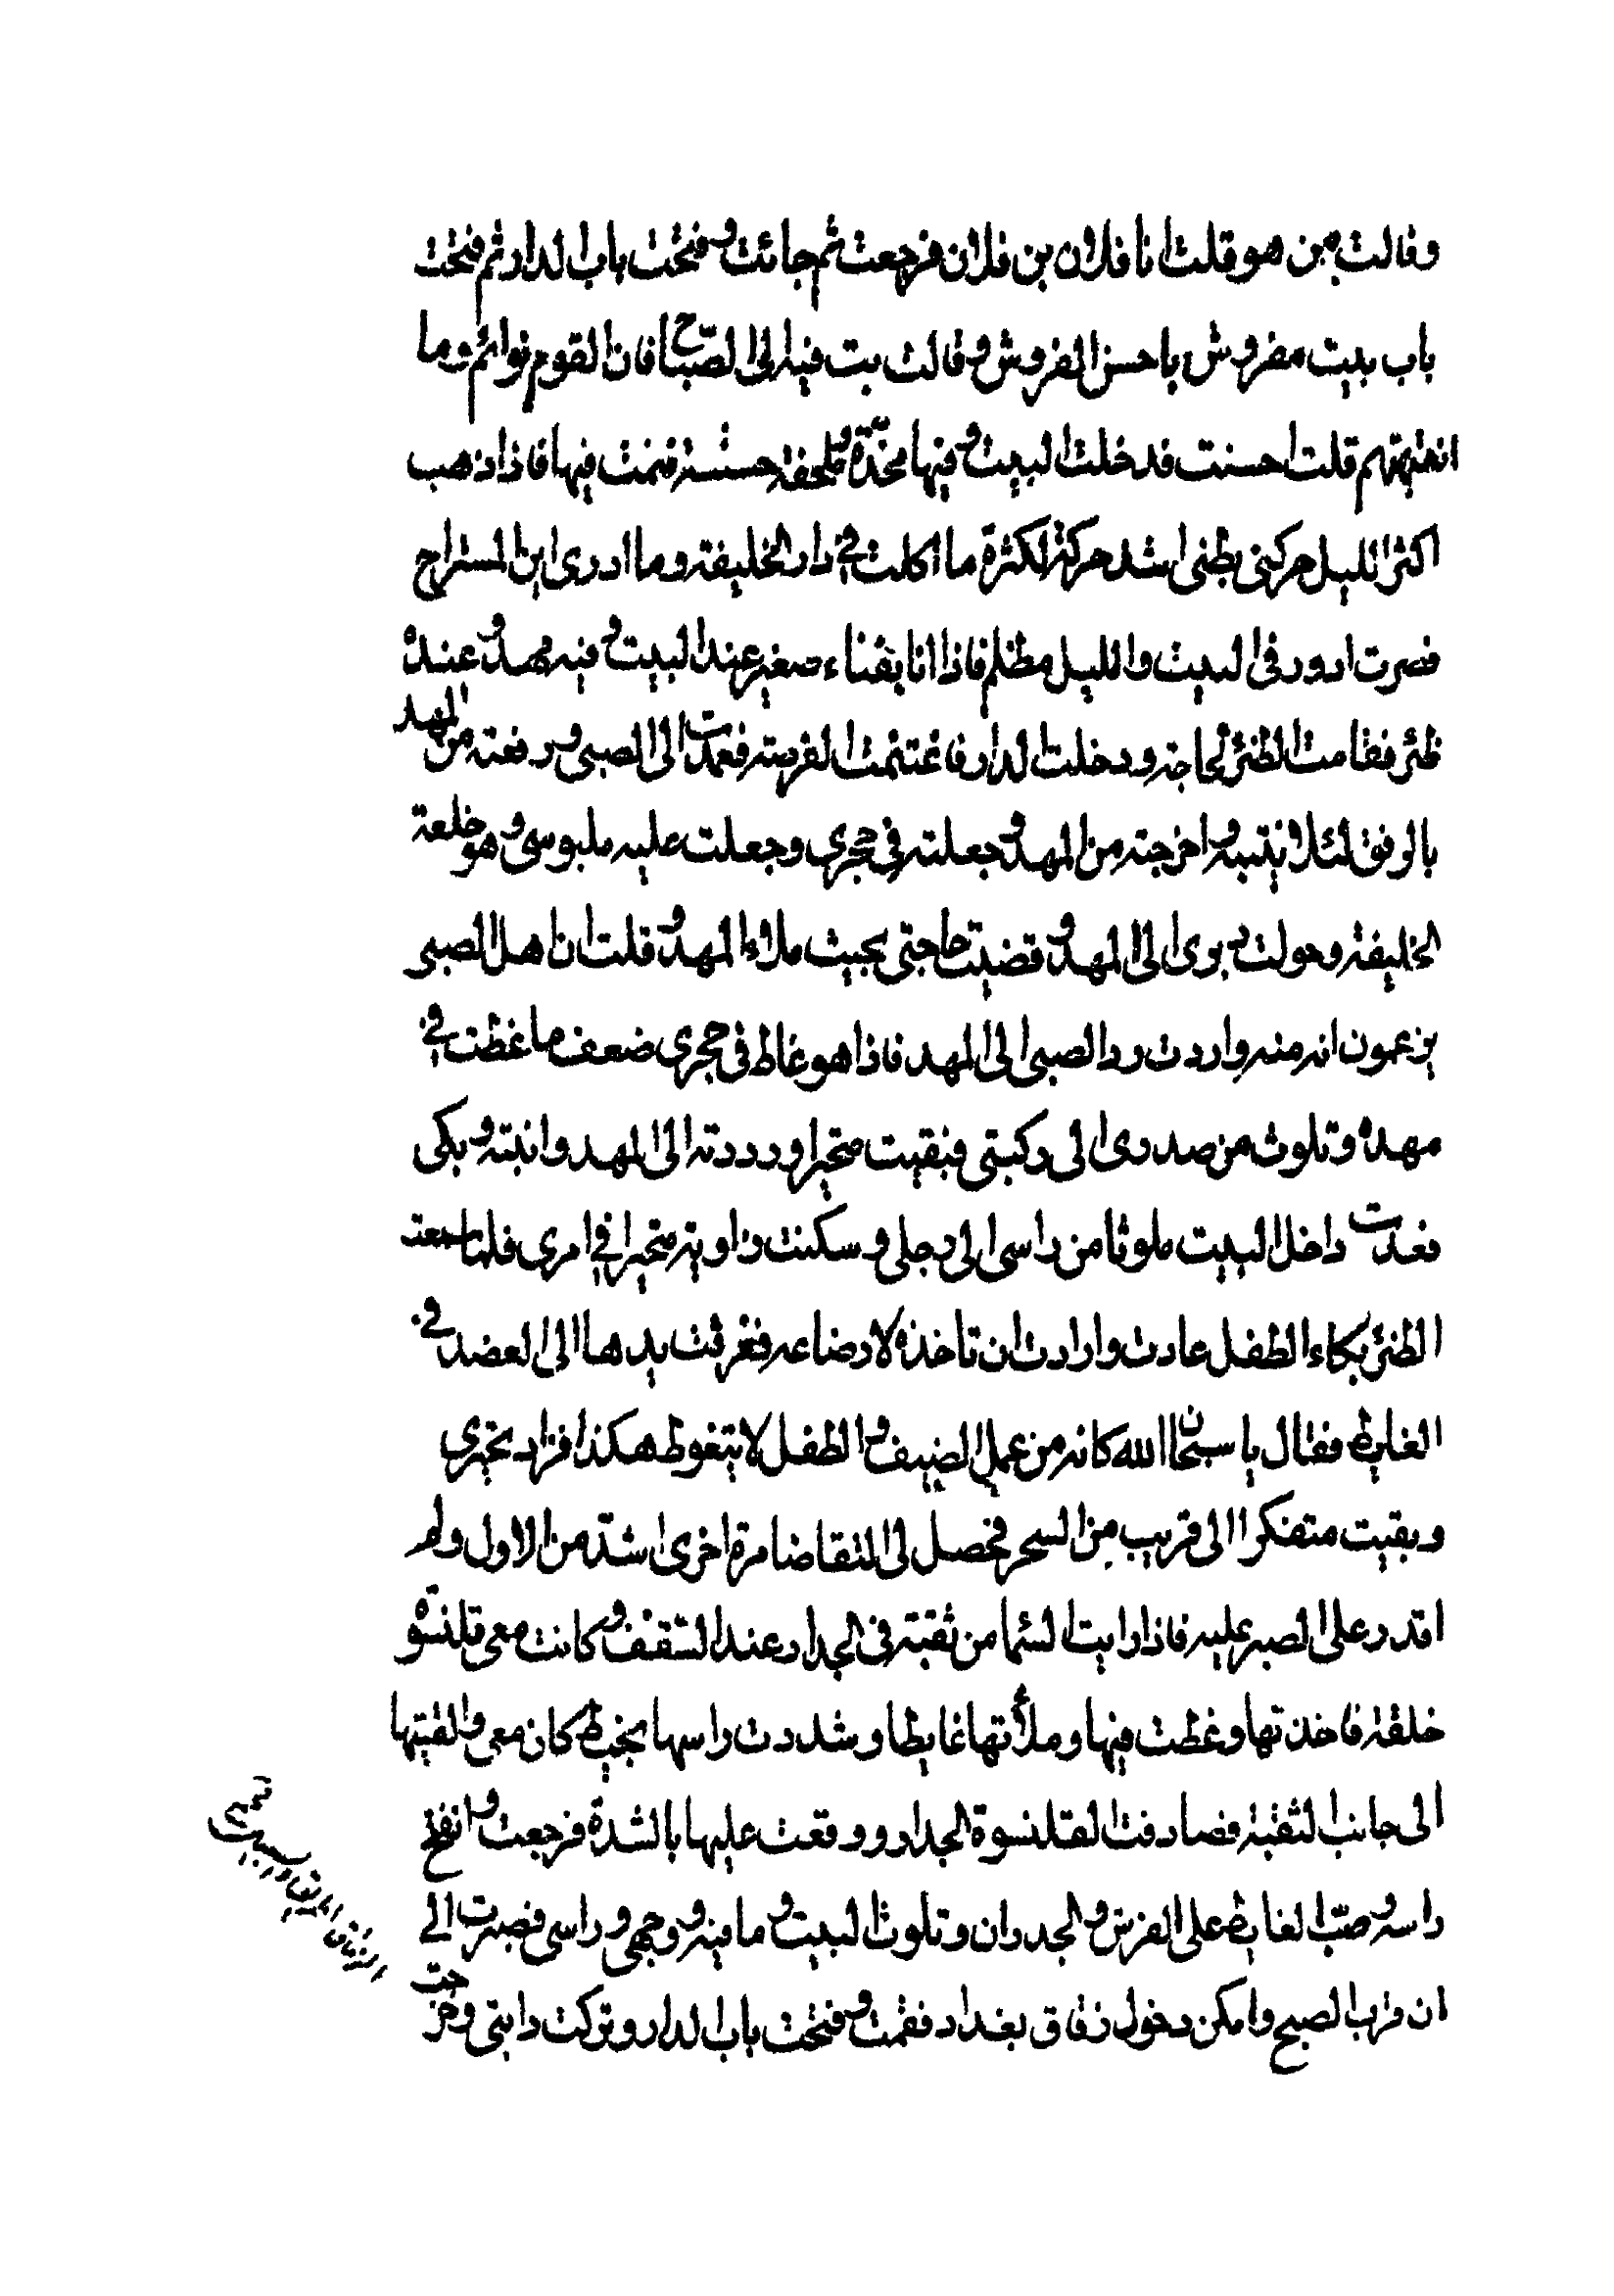 وقالت من هو قلت انا فلان بن فلان فرجعت ثم جائت وفتحت باب الدار ثم فتحت
باب بيت مفروش باحسن الفروش وقالت بت فيه الى الصباح فان القوم نوائم وما
انبهتهم قلت احسنت فدخلت البيت وفيها مخدّة وملحفة حسنة فنمت فيها فاذا ذهب
اكثر الليل حركنى بطنى اشد حركة لكثرة ما اكلت في دار الخليفة وما ادرى اين المستراح
فصرت ادور فى البيت والليل مظلم فاذا انا بفناء صغير عند البيت وفيه مهد وعنده
ظئر فقامت الظئر لحاجة ودخلت الدار فاغتنمت الفرصة فعمدت الى الصبى ورفعته من المهد
بالوفق لئلا ينتبه واخرجته من المهد وجعلته فى حجرى وجعلت عليه ملبوسى وهو خلعة
الخليفة وحولت دبرى الى المهد وقضيت حاجتى بحيث ملاء المهد وقلت ان اهل الصبى
يزعمون انه منه واردت رد الصبى الى المهد فاذا هو غاط فى حجرى ضعف ما غطت في
مهده وتلوث من صدرى الى ركبتى فبقيت متحيرا ورددته الى المهد وانبته وبكى
فعدت داخل البيت ملوثا من راسى الى رجلى وسكنت زاوية متحيرا في امرى فلما سمعت
الظئر بكاء الطفل عادت وارادت ان تاخذه لارضاعه فغرقت يدها الى العضد في
الغايط فقال يا سبحان الله كانه من عمل الضيف والطفل لا يتغوط هكذا فزاد تحيرى
وبقيت متفكرا الى قريب من السحر فحصل لى التقاضا مرة اخرى اشدّ من الاول ولم
اقدر على الصبر عليه فاذا رايت السما من ثقبة فى الجدار عند السقف وكانت معى قلنسوة
خلقة فاخذتها وغطت فيها وملأتها غايطا وشددت راسها بخيط كان معى والقيتها
الى جانب الثقبة فصادفت القلنسوة الجدار ووقعت عليها بالشدة فرجعت وانفتح
راسه وصبّ الغايط على الفرش والجدران وتلوث البيت وما فيه ووجهى وراسى فصبرت الى
ان قرب الصبح وامكن دخول زقاق بغداد فقمت وفتحت باب الدار وتركت دابتى وخرجت